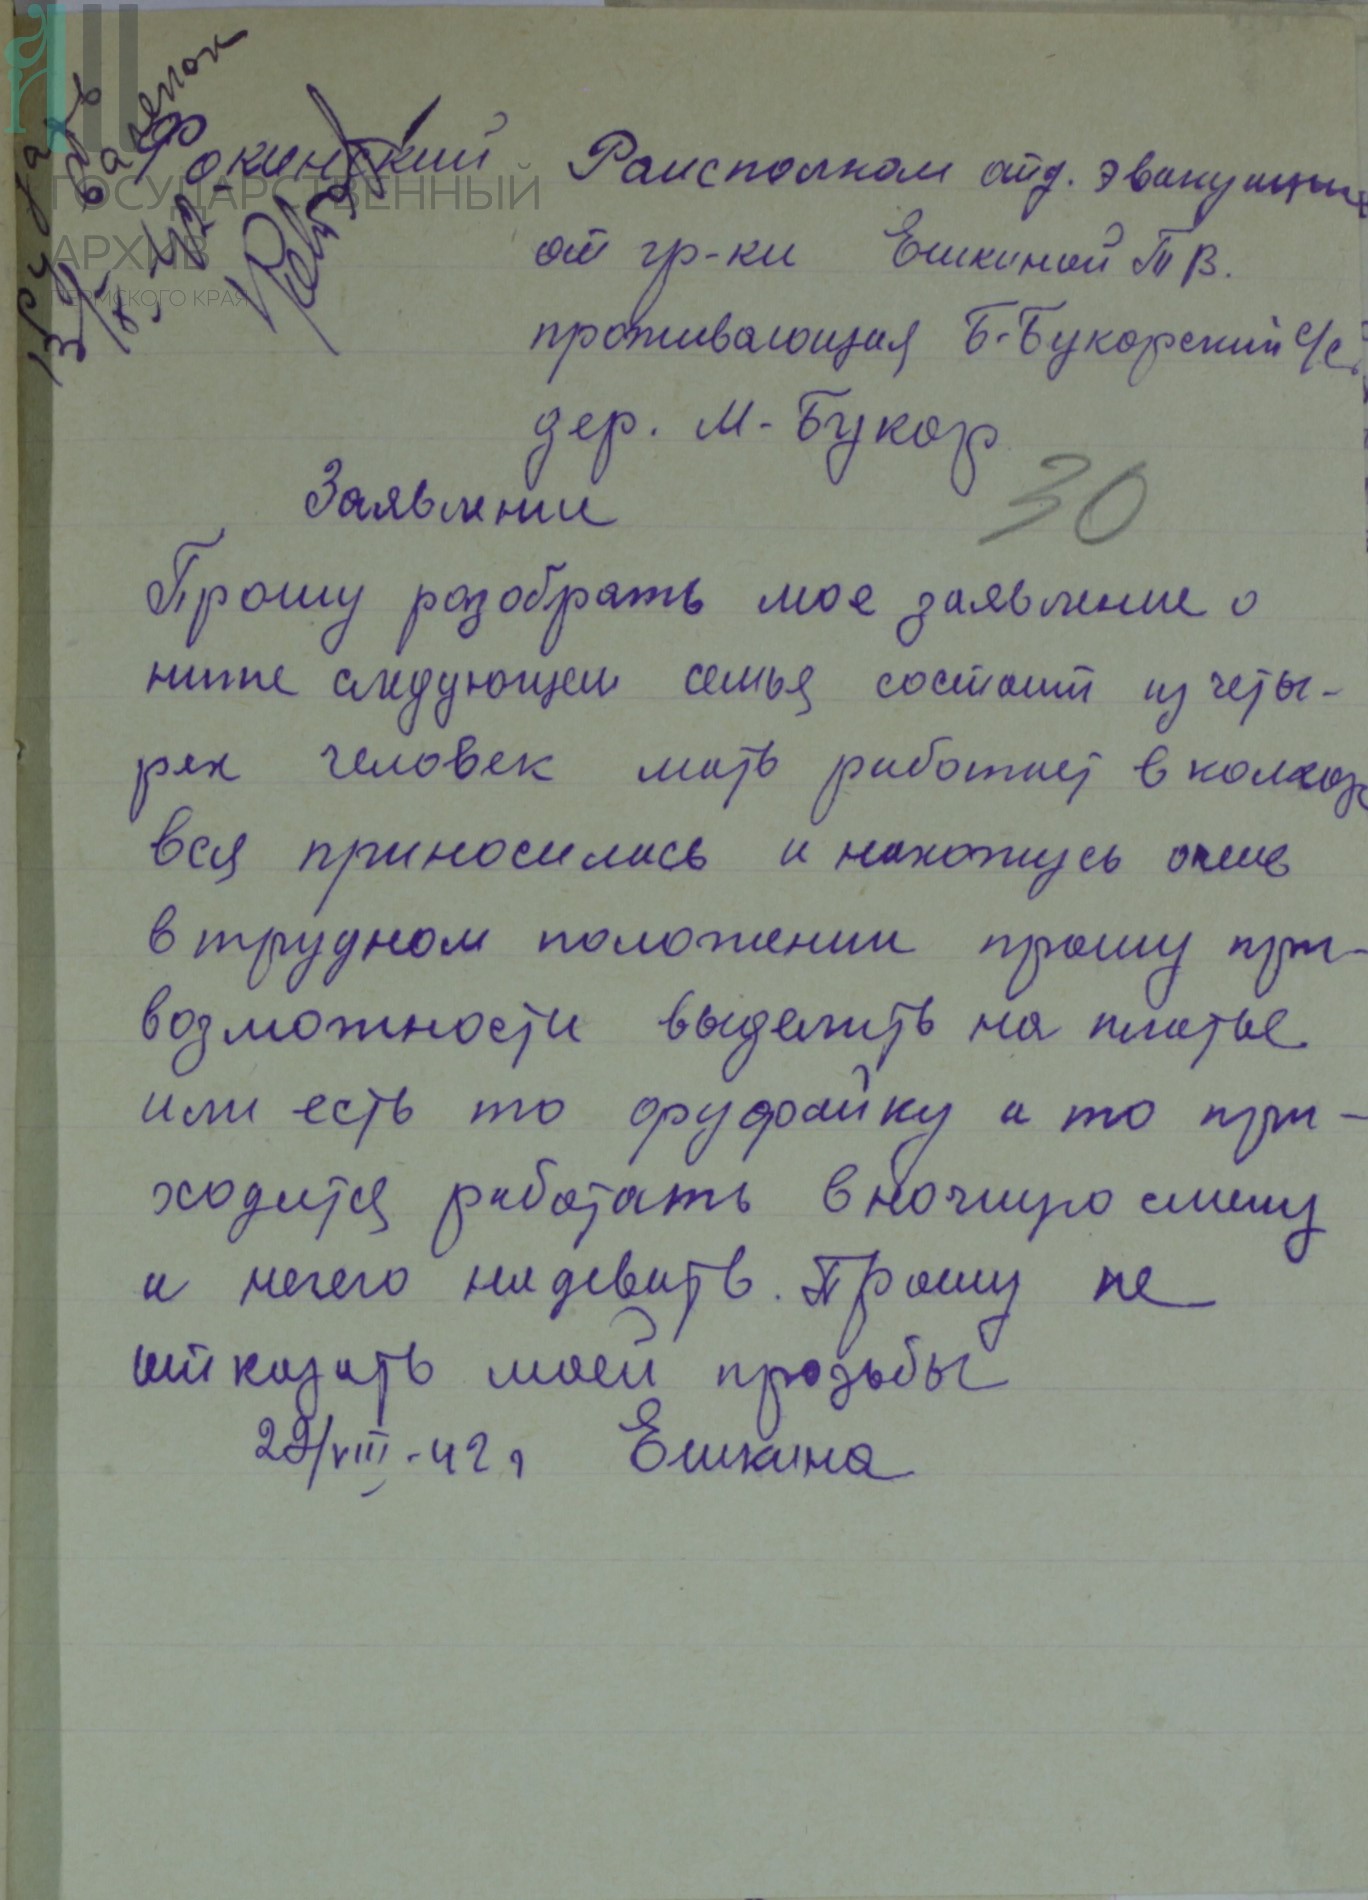 валенок
Фокинский Раисполком отд. эвакуации
от гр-ки Ешкиной Т В.
проживающая Б-Букорский с/с
дер. М-Букор
30
Заявление
Прошу розобрать мое заявление о
ниже следующем семья состоит из четы-
рех человек мать работает в колхоз
вся приносилась и нахожусь
в трудном положении прошу при-
возможности выделить на платье
или есть то фуфайку а то при-
ходится работать в ночную смену
и нечего надевать. Прошу не
отказать моей прозьбы
29/VIII-42 г Ешкина
ГОСУДАРСТВЕННЫЙ
АРХИВ
ПЕРМСКОГО КРАЯ